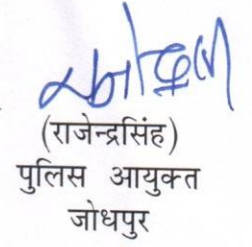 (राजेन्द्रसिंह)
पुलिस आयुक्त
जोधपुर